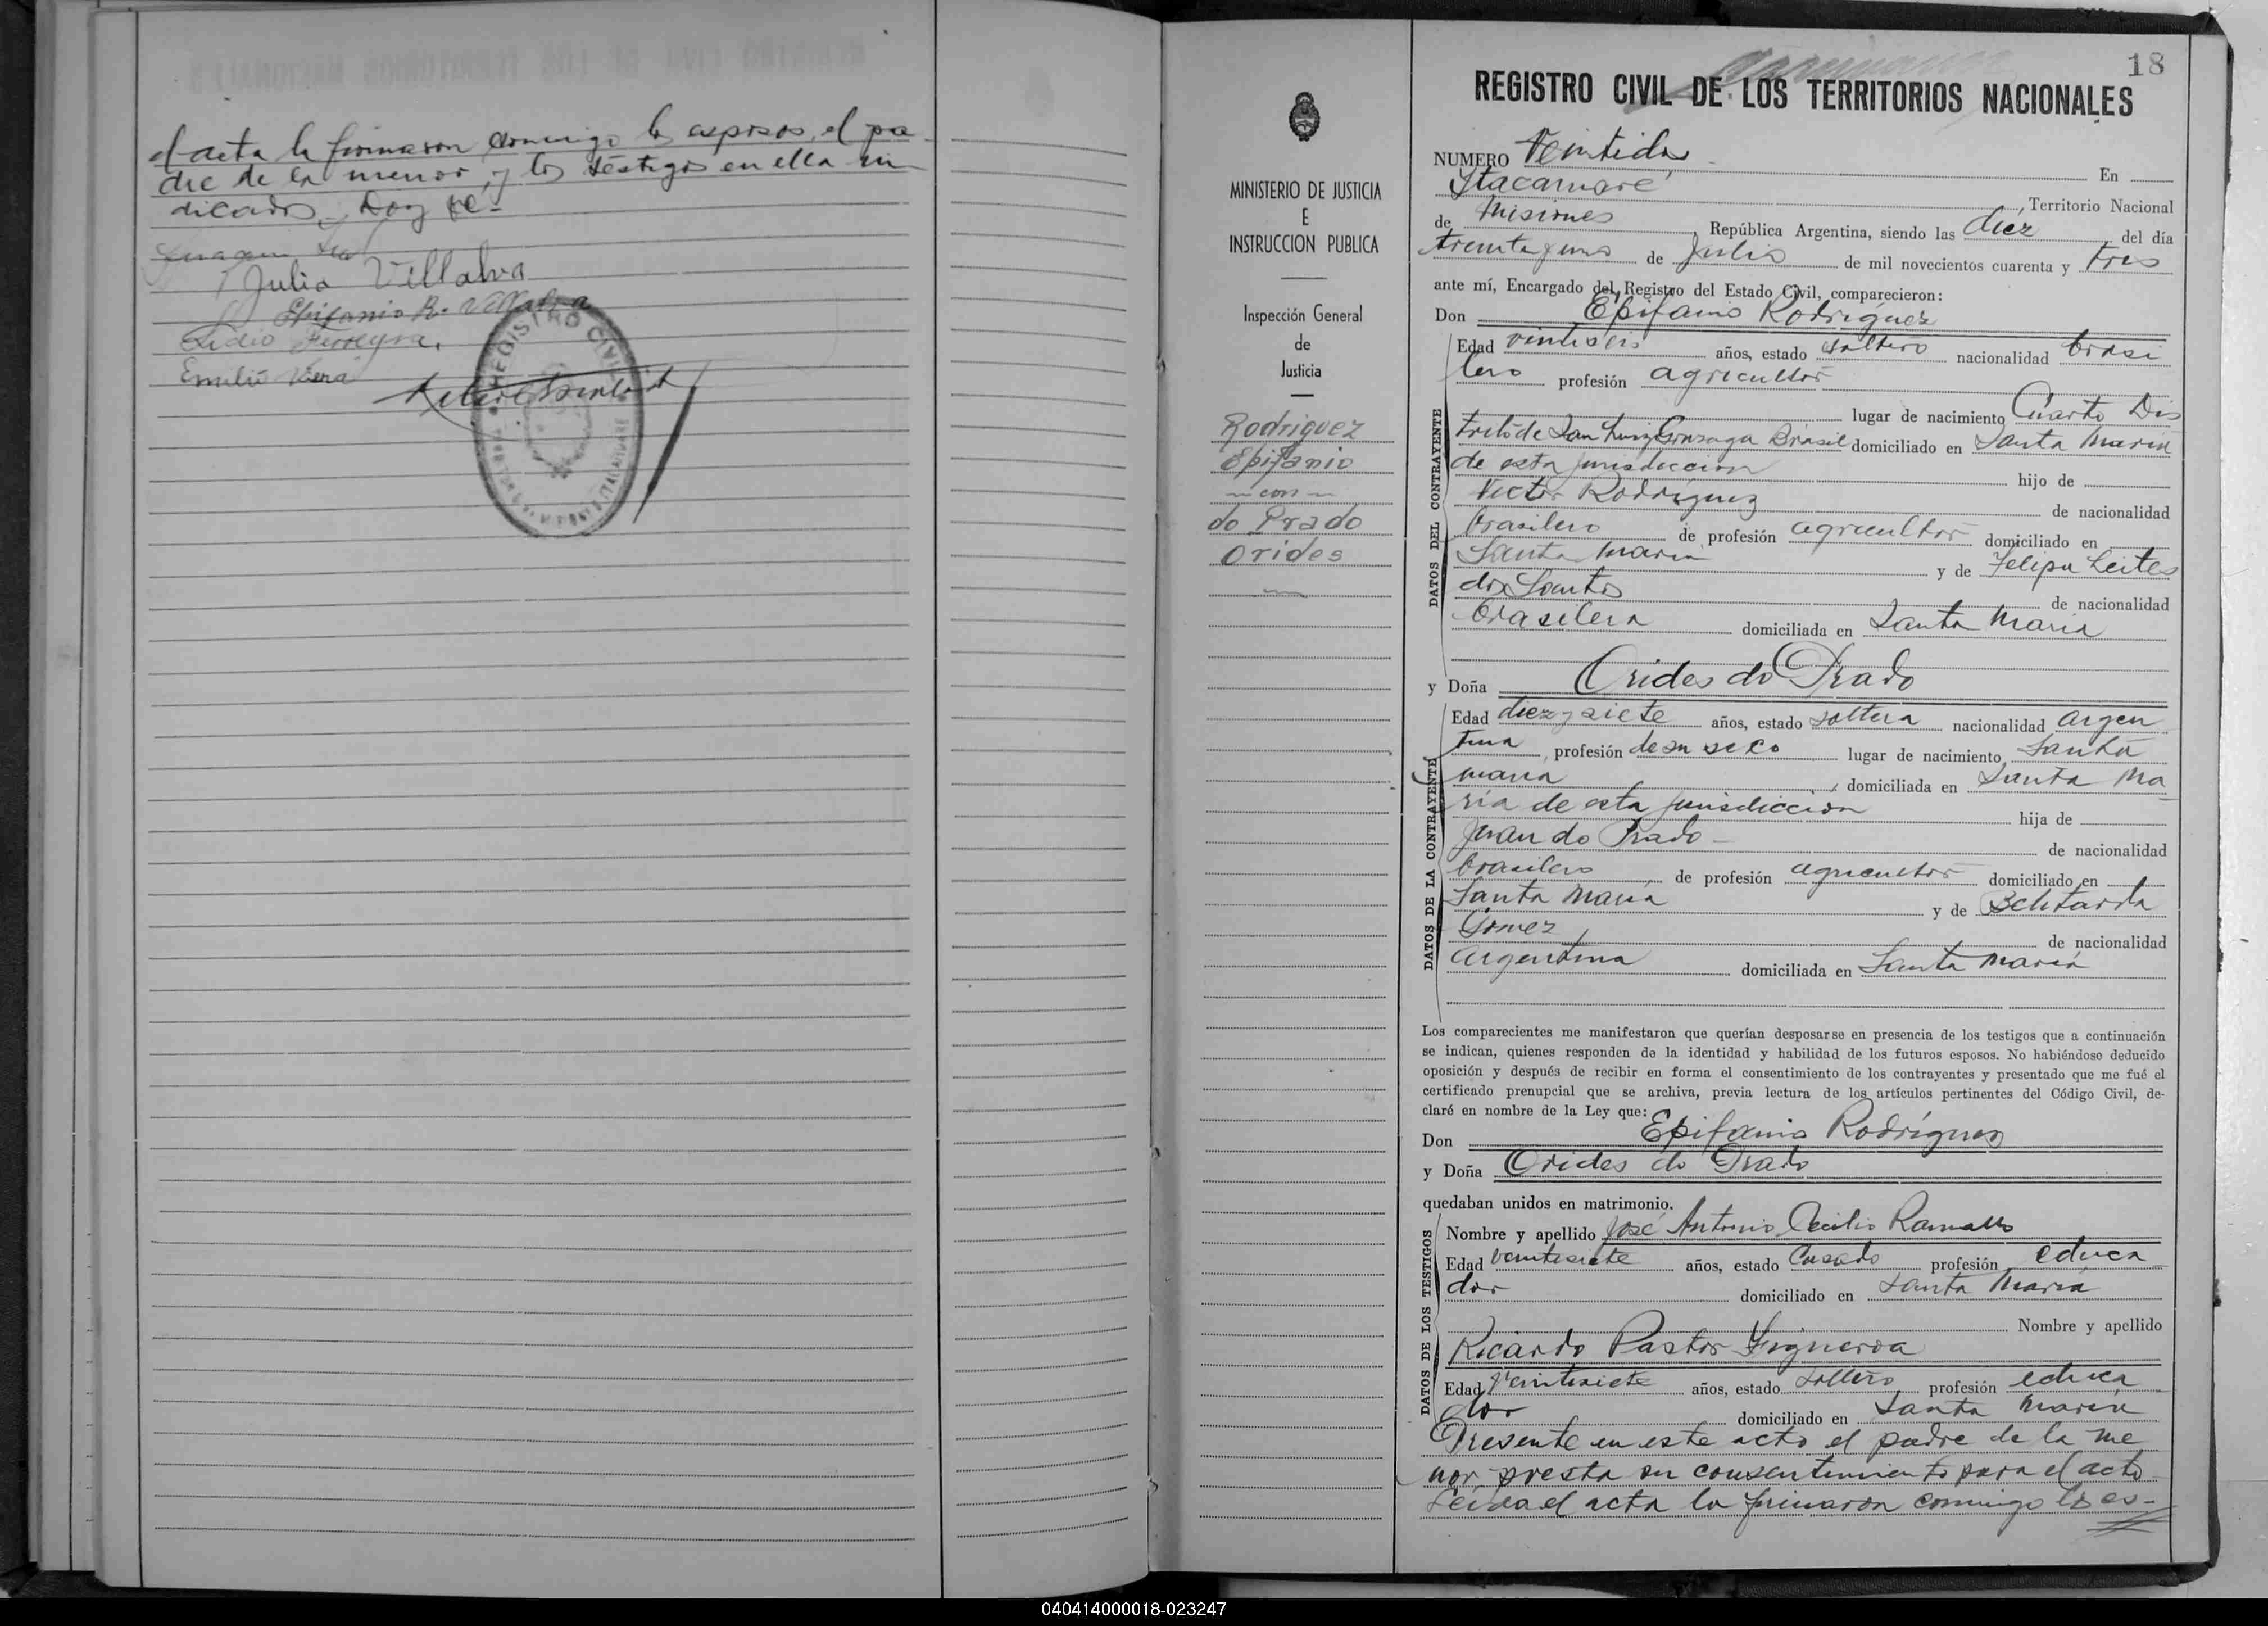 el acta la firmaron conmigo los esposos, el pa-
dre de la menor, y los testigos en ella in-
dicados. Doy fe-
Julia Villalva
Epifanio R. Villalva
Lidio Ferreyra.
Emilio Viera
REGISTRO CIVIL
ITACARUARE
18
REGISTRO CIVIL DE LOS TERRITORIOS NACIONALES
MINISTERIO DE JUSTICIA
E
INSTRUCCION PUBLICA
Inspección General
de
Justicia
Rodriguez
Epifanio
- con -
do Prado
Orides
NUMERO Veintidos En
Itacaruaré, Territorio Nacional
de Misiones, República Argentina, siendo las diez del día
treinta y uno de Julio de mil novecientos cuarenta y tres
ante mí, Encargado del Registro del Estado Civil, comparecieron:
Don Epifanio Rodríguez
DATOS DEL CONTRAYENTE
Edad vintiseis años, estado soltero nacionalidad brasi
lero profesión agricultor
lugar de nacimiento Cuarto Dis
trito de San Luiz Gonzaga Brasil domiciliado en Santa María
de esta jurisdiccion hijo de
Victor Rodríguez de nacionalidad
brasilero de profesión agricultor domiciliado en
Santa María y de Felipa Leites
dos Santos de nacionalidad
brasilera domiciliada en Santa María
y Doña Orides do Prado
DATOS DE LA CONTRAYENTE
Edad diez y siete años, estado soltera nacionalidad argen
tina, profesión de su sexo lugar de nacimiento Santa
maría, domiciliada en Santa Ma-
ría de esta jurisdiccion hija de
Juan do Prado - de nacionalidad
brasilero de profesión agricultor domiciliado en
Santa María y de Belitarda
Gomez de nacionalidad
argentina domiciliada en Santa María
Los comparecientes me manifestaron que querían desposarse en presencia de los testigos que a continuación
se indican, quienes responden de la identidad y habilidad de los futuros esposos. No habiéndose deducido
oposición y después de recibir en forma el consentimiento de los contrayentes y presentado que me fué el
certificado prenupcial que se archiva, previa lectura de los artículos pertinentes del Código Civil, de-
claré en nombre de la Ley que:
Don Epifanio Rodríguez
y Doña Orides do Prado
quedaban unidos en matrimonio.
DATOS DE LOS TESTIGOS
Nombre y apellido José Antonio Cecilio Ramallo
Edad veintisiete años, estado Casado profesión educa
dor domiciliado en Santa María
Nombre y apellido
Ricardo Pastor Figueroa
Edad Veintisiete años, estado soltero profesión educa
dor domiciliado en Santa María
Presente en este acto el padre de la me
nor presta su consentimiento para el acto
Leida el acta la firmaron conmigo los es-
040414000018-023247